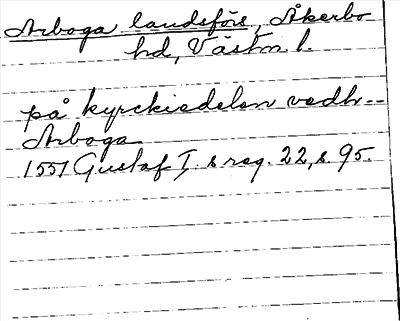 Arboga landsförs, Åkerbo
hd, Västm l.
på kyrckiedelen vedh--
Arboga
1551 Gustaf I. s reg. 22, s. 95.